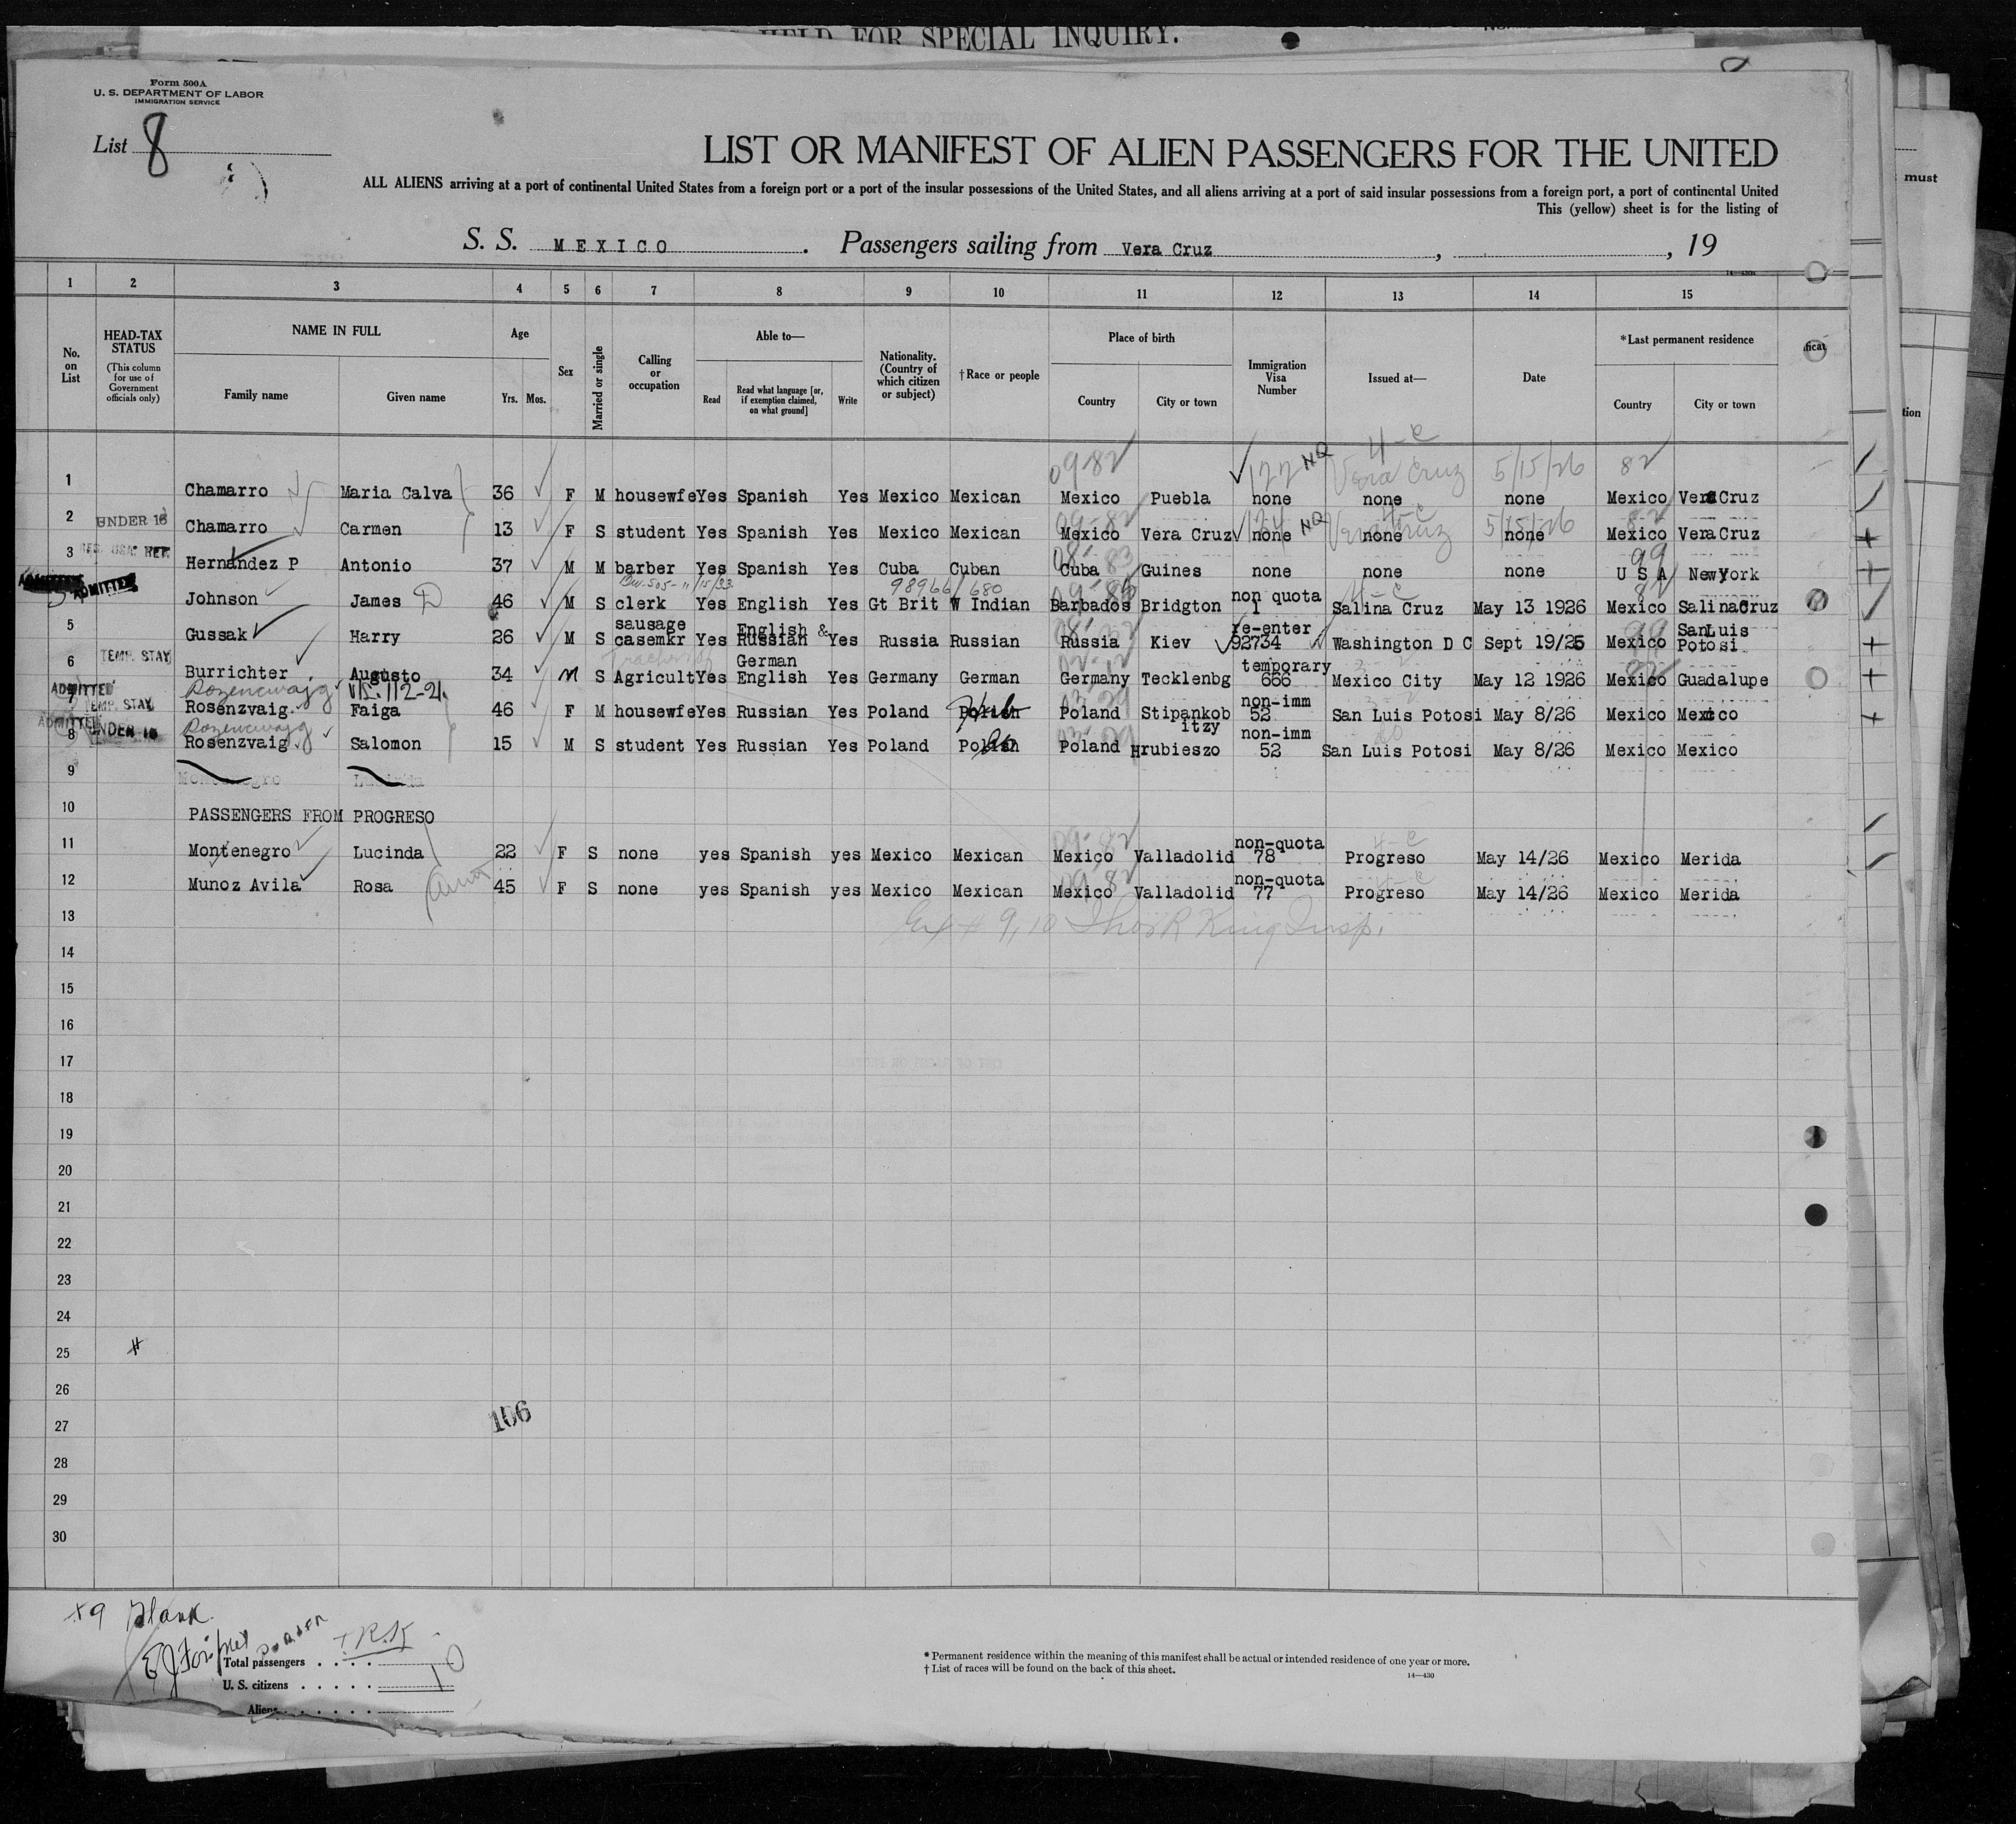 HELD FOR SPECIAL INQUIRY.
Form 500A
U. S. DEPARTMENT OF LABOR
IMMIGRATION SERVICE
List 8
LIST OR MANIFEST OF ALIEN PASSENGERS FOR THE UNITED
ALL ALIENS arriving at a port of continental United States from a foreign port or a port of the insular possessions of the United States, and all aliens arriving at a port of said insular possessions from a foreign port, a port of continental United
must
This (yellow) sheet is for the listing of
S. S. MEXICO . Passengers sailing from Vera Cruz , , 19
1 2 3 4 5 6 7 8 9 10 11 12 13 14 15
No. on List
HEAD-TAX STATUS
(This column for use of Government officials only)
NAME IN FULL
Family name Given name
Age
Yrs. Mos.
Sex
Married or single
Calling or occupation
Able to—
Read
Read what language [or, if exemption claimed, on what ground]
Write
Nationality. (Country of which citizen or subject)
†Race or people
Place of birth
Country City or town
Immigration Visa Number
Issued at—
Date
*Last permanent residence
Country City or town
4-C
09-82 122 NQ Vera Cruz 5/15/26 82
1 Chamarro Maria Calva 36 F M housewfe Yes Spanish Yes Mexico Mexican Mexico Puebla none none none Mexico Vera Cruz
2 UNDER 16 Chamarro Carmen 13 F S student Yes Spanish Yes Mexico Mexican Mexico Vera Cruz none none none Mexico Vera Cruz
NQ Vera Cruz 5/15/26
3 Hernandez P Antonio 37 M M barber Yes Spanish Yes Cuba Cuban Cuba Guines none none none U S A New York
99
ADMITTED
98966/680
non quota
Johnson James D 46 M S clerk Yes English Yes Gt Brit W Indian Barbados Bridgton 1 Salina Cruz May 13 1926 Mexico Salina Cruz
sausage English & re-enter San Luis
5 Gussak Harry 26 M S casemkr Yes Russian Yes Russia Russian Russia Kiev 92734 Washington D C Sept 19/25 Mexico Potosi
TEMP. STAY German temporary
6 Burrichter Augusto 34 M S Agricult Yes English Yes Germany German Germany Tecklenbg 666 Mexico City May 12 1926 Mexico Guadalupe
ADMITTED Rozencwajg non-imm
TEMP. STAY Rosenzvaig Faiga 46 F M housewfe Yes Russian Yes Poland Polish Heb Poland Stipankob 52 San Luis Potosi May 8/26 Mexico Mexico
ADMITTED Rozencwajg itzy non-imm
8 UNDER 16 Rosenzvaig Salomon 15 M S student Yes Russian Yes Poland Polish Poland Hrubieszo 52 San Luis Potosi May 8/26 Mexico Mexico
9 Montenegro Lucinda
10 PASSENGERS FROM PROGRESO
09-82 non-quota 4-C
11 Montenegro Lucinda 22 F S none yes Spanish yes Mexico Mexican Mexico Valladolid 78 Progreso May 14/26 Mexico Merida
aunt 09-82 non-quota 4-C
12 Munoz Avila Rosa 45 F S none yes Spanish yes Mexico Mexican Mexico Valladolid 77 Progreso May 14/26 Mexico Merida
13
14
15
16
17
18
19
20
21
22
23
24
25
26
27
28
29
30
106
Blank
Total passengers
U. S. citizens
10
Aliens
* Permanent residence within the meaning of this manifest shall be actual or intended residence of one year or more.
† List of races will be found on the back of this sheet.
14—430